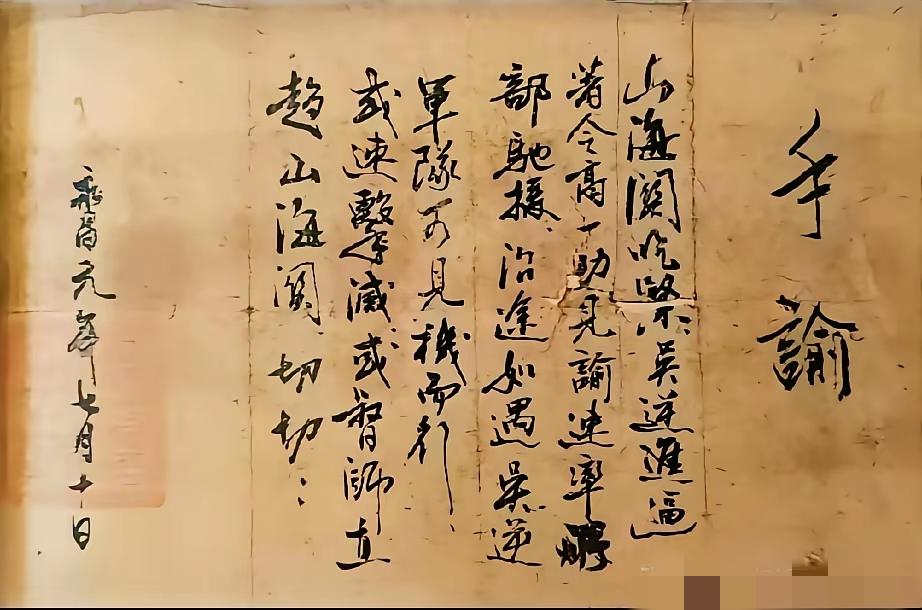 手諭
山海關吃緊吳逆進逼
著令高一助見諭速率
部馳援、沿途如遇吳逆
軍隊可見機而行、
或速擊滅、或督師直
趨山海關、切切：
永昌元年七月十日